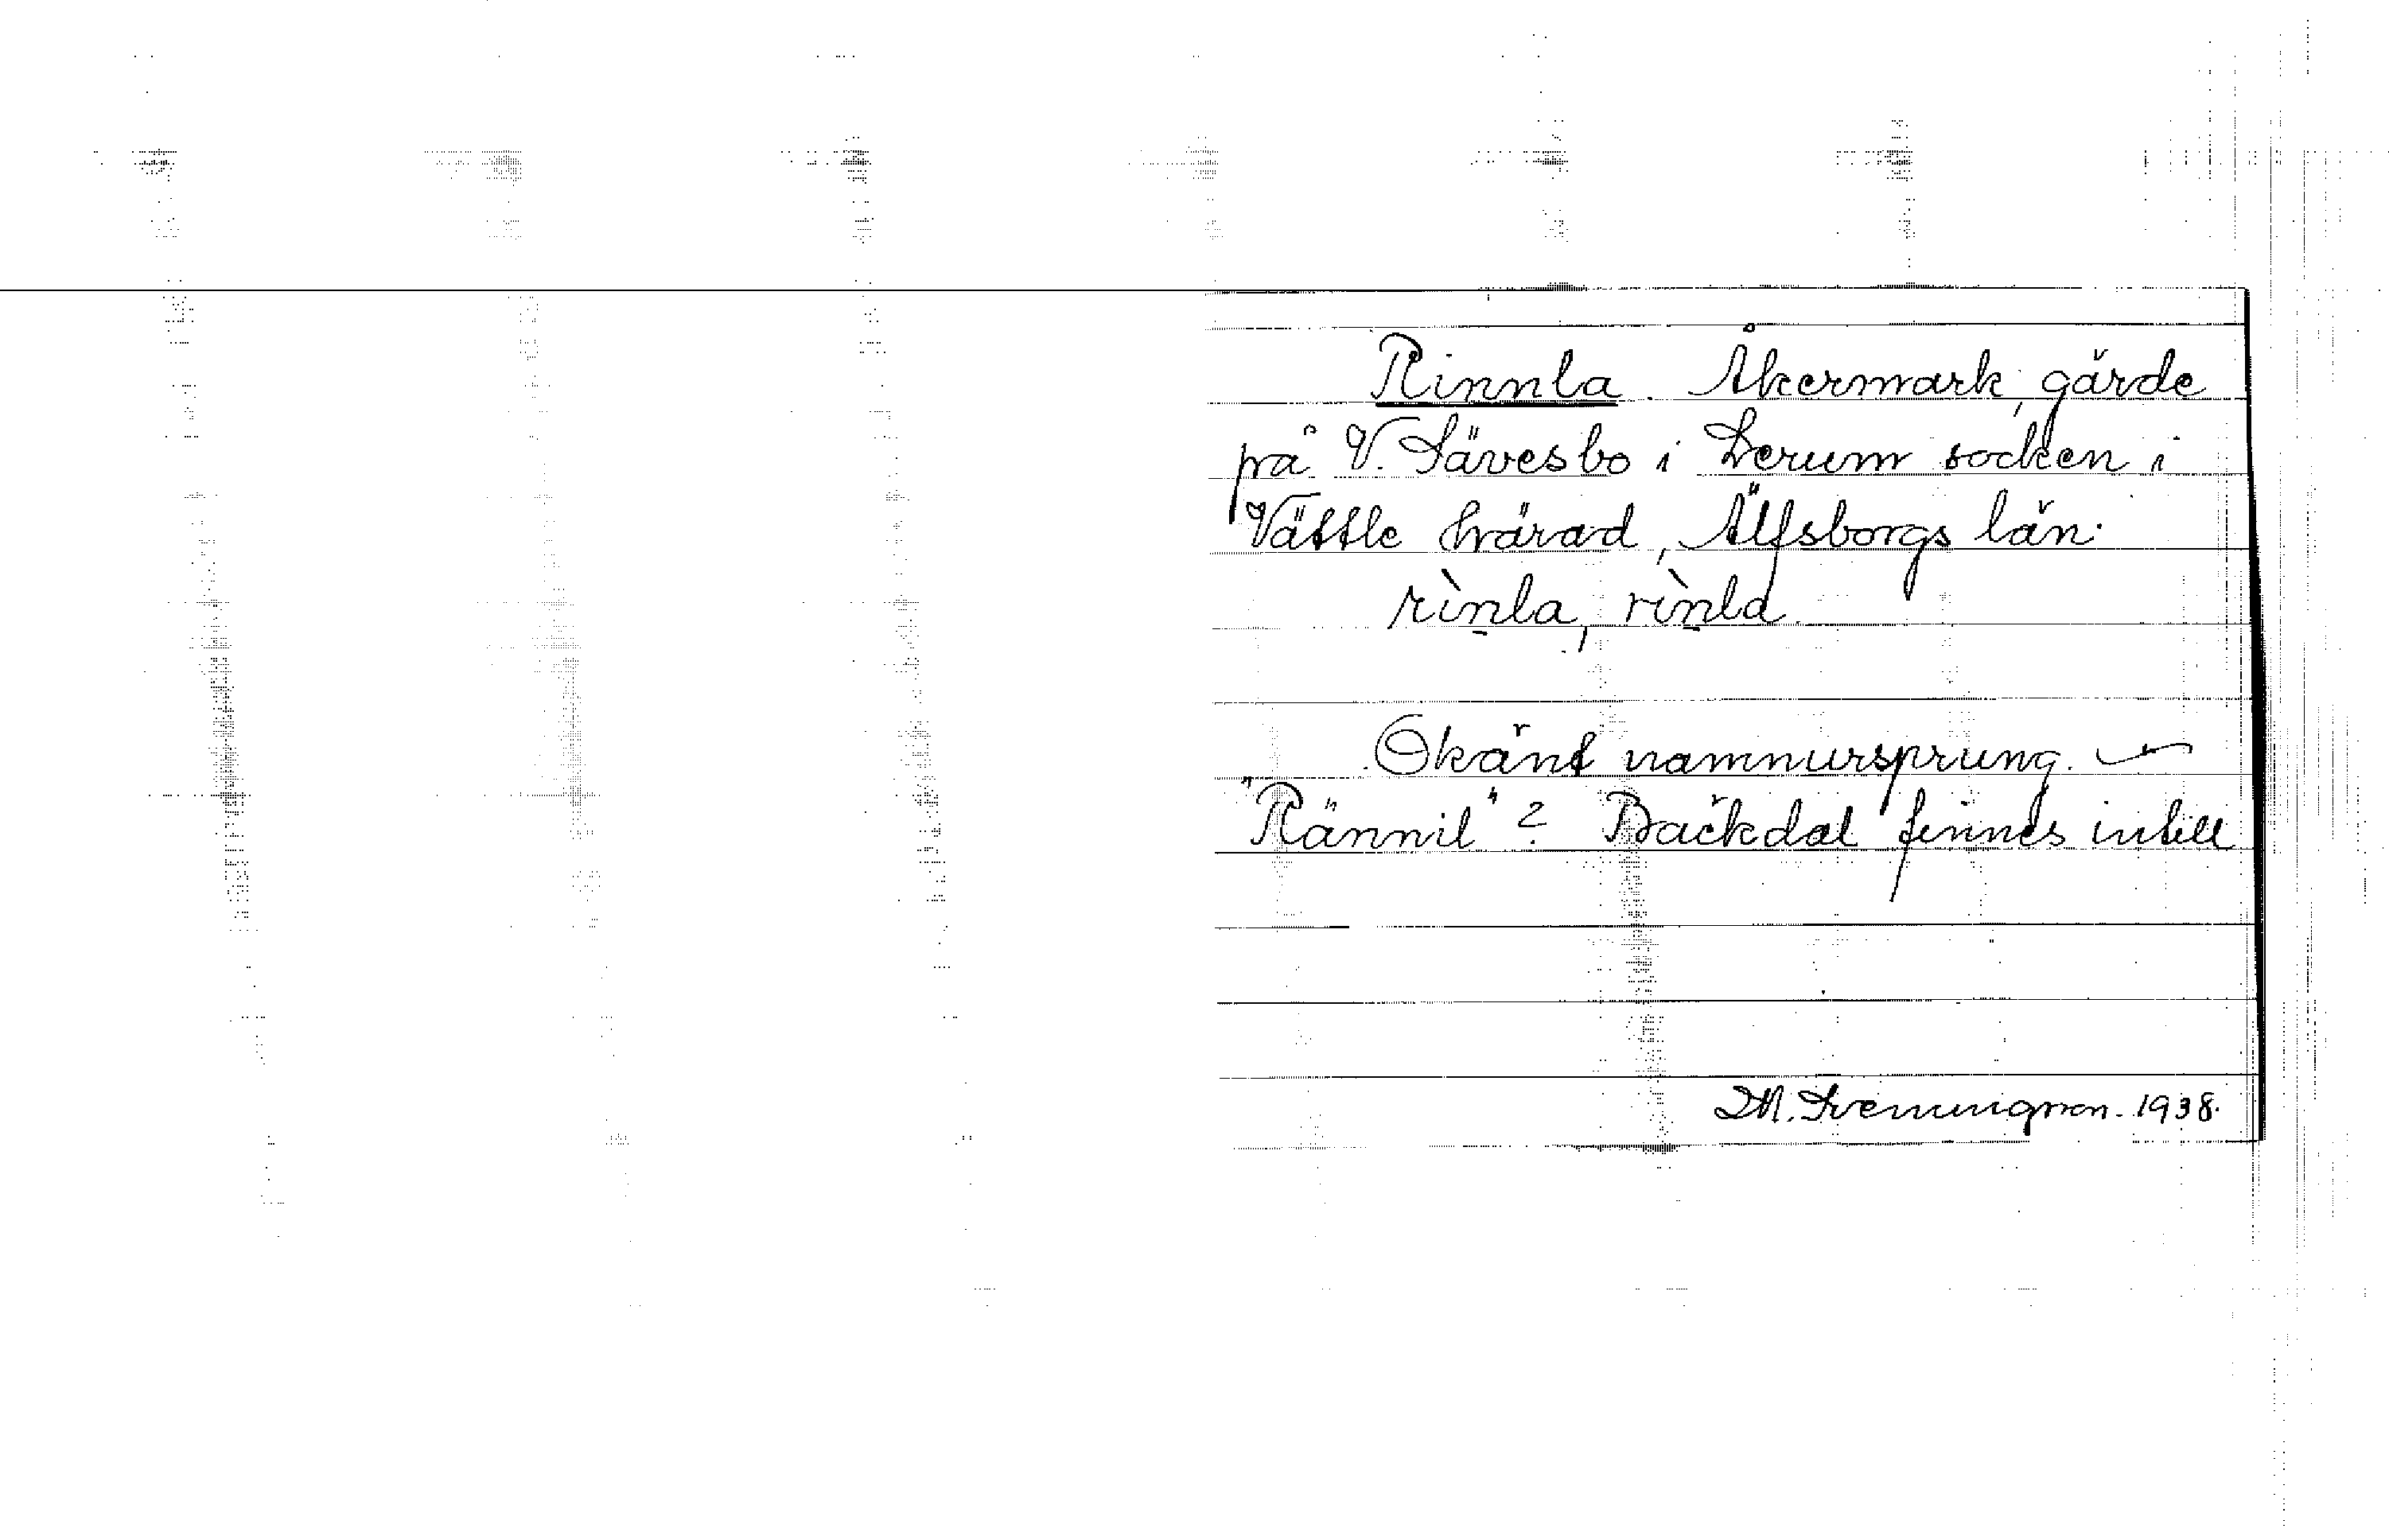 Rinnla. Åkermark, gärde
på V. Sävesbo i Lerum socken i
Vättle härad, Älfsborgs län.
rìn̠la, rìn̠la.
Okänt namnursprung. —
"Rännil"? Bäckdal finnes intill
M. Svenungsson. 1938.